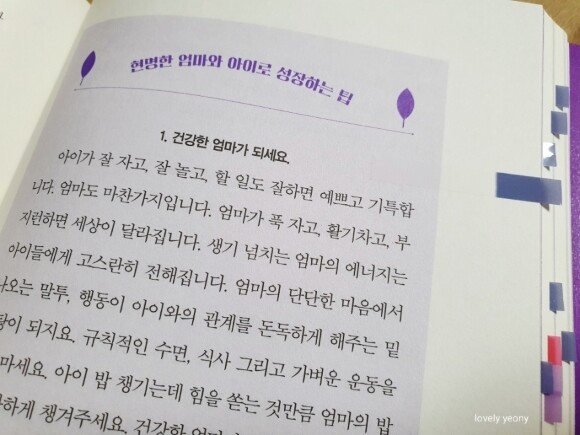 현명한 엄마와 아이로 성장하는 팁
1. 건강한 엄마가 되세요.
아이가 잘 자고, 잘 놀고, 할 일도 잘하면 예쁘고 기특합
니다. 엄마도 마찬가지입니다. 엄마가 푹 자고, 활기차고, 부
지런하면 세상이 달라집니다. 생기 넘치는 엄마의 에너지는
아이들에게 고스란히 전해집니다. 엄마의 단단한 마음에서
나오는 말투, 행동이 아이와의 관계를 돈독하게 해주는 밑
탕이 되지요. 규칙적인 수면, 식사 그리고 가벼운 운동을
마세요. 아이 밥 챙기는데 힘을 쏟는 것만큼 엄마의 밥
하게 챙겨주세요. 건강한 엄마
lovely yeony